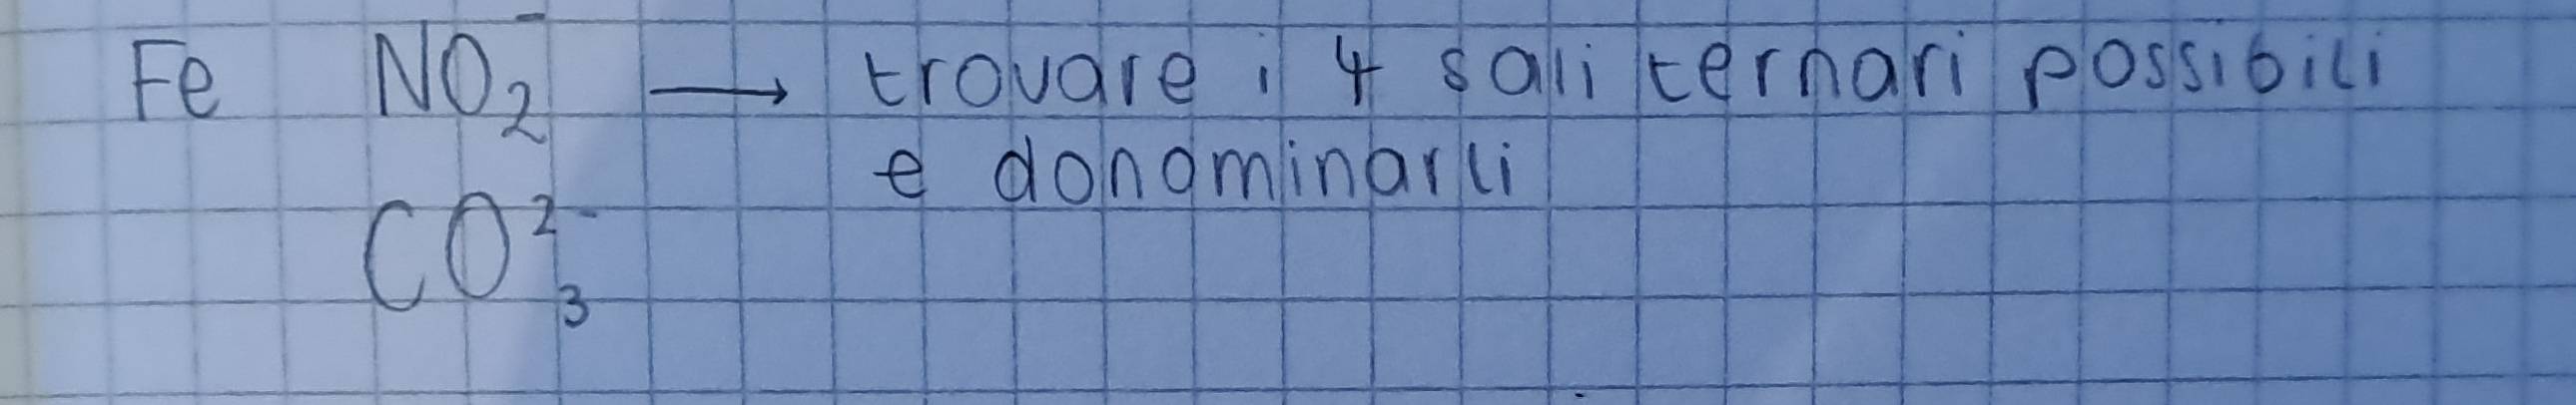 Fe NO₂⁻ → trovare i 4 sali ternari possibili
e donominarli
CO₃²⁻